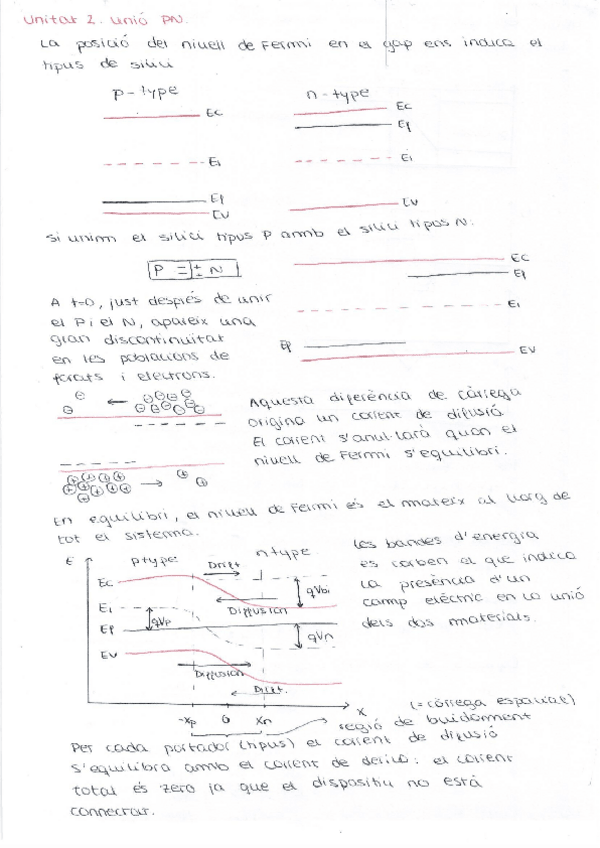 Unitat 2. Unió PN.
La posició del nivell de Fermi en el gap ens indica el
tipus de silici
p-type
n-type
Ec
Ei
Ef
Ev
Ec
Ef
Ei
Ev
Si unim el silici tipus P amb el silici tipus N.
P = ± N
Ec
Ef
Ei
Ef
Ev
A t=0, just després de unir
el P i el N, apareix una
gran discontinuïtat
en les poblacions de
forats i electrons.
Aquesta diferència de càrrega
origina un corrent de difusió
El corrent s'anul·larà quan el
nivell de Fermi s'equilibri.
En equilibri, el nivell de Fermi és el mateix al llarg de
tot el sistema.
E
p type
Drift
n type
Ec
qVbi
Ei
qVp
Diffusion
Ef
qVn
Ev
Diffusion
Drift.
-xp
0
xn
x
Les bandes d'energia
es corben el que indica
la presència d'un
camp elèctric en la unió
dels dos materials.
(=càrrega espacial)
regió de buidament
Per cada portador (tipus) el corrent de difusió
s'equilibra amb el corrent de deriva: el corrent
total és zero ja que el dispositiu no està
connectat.